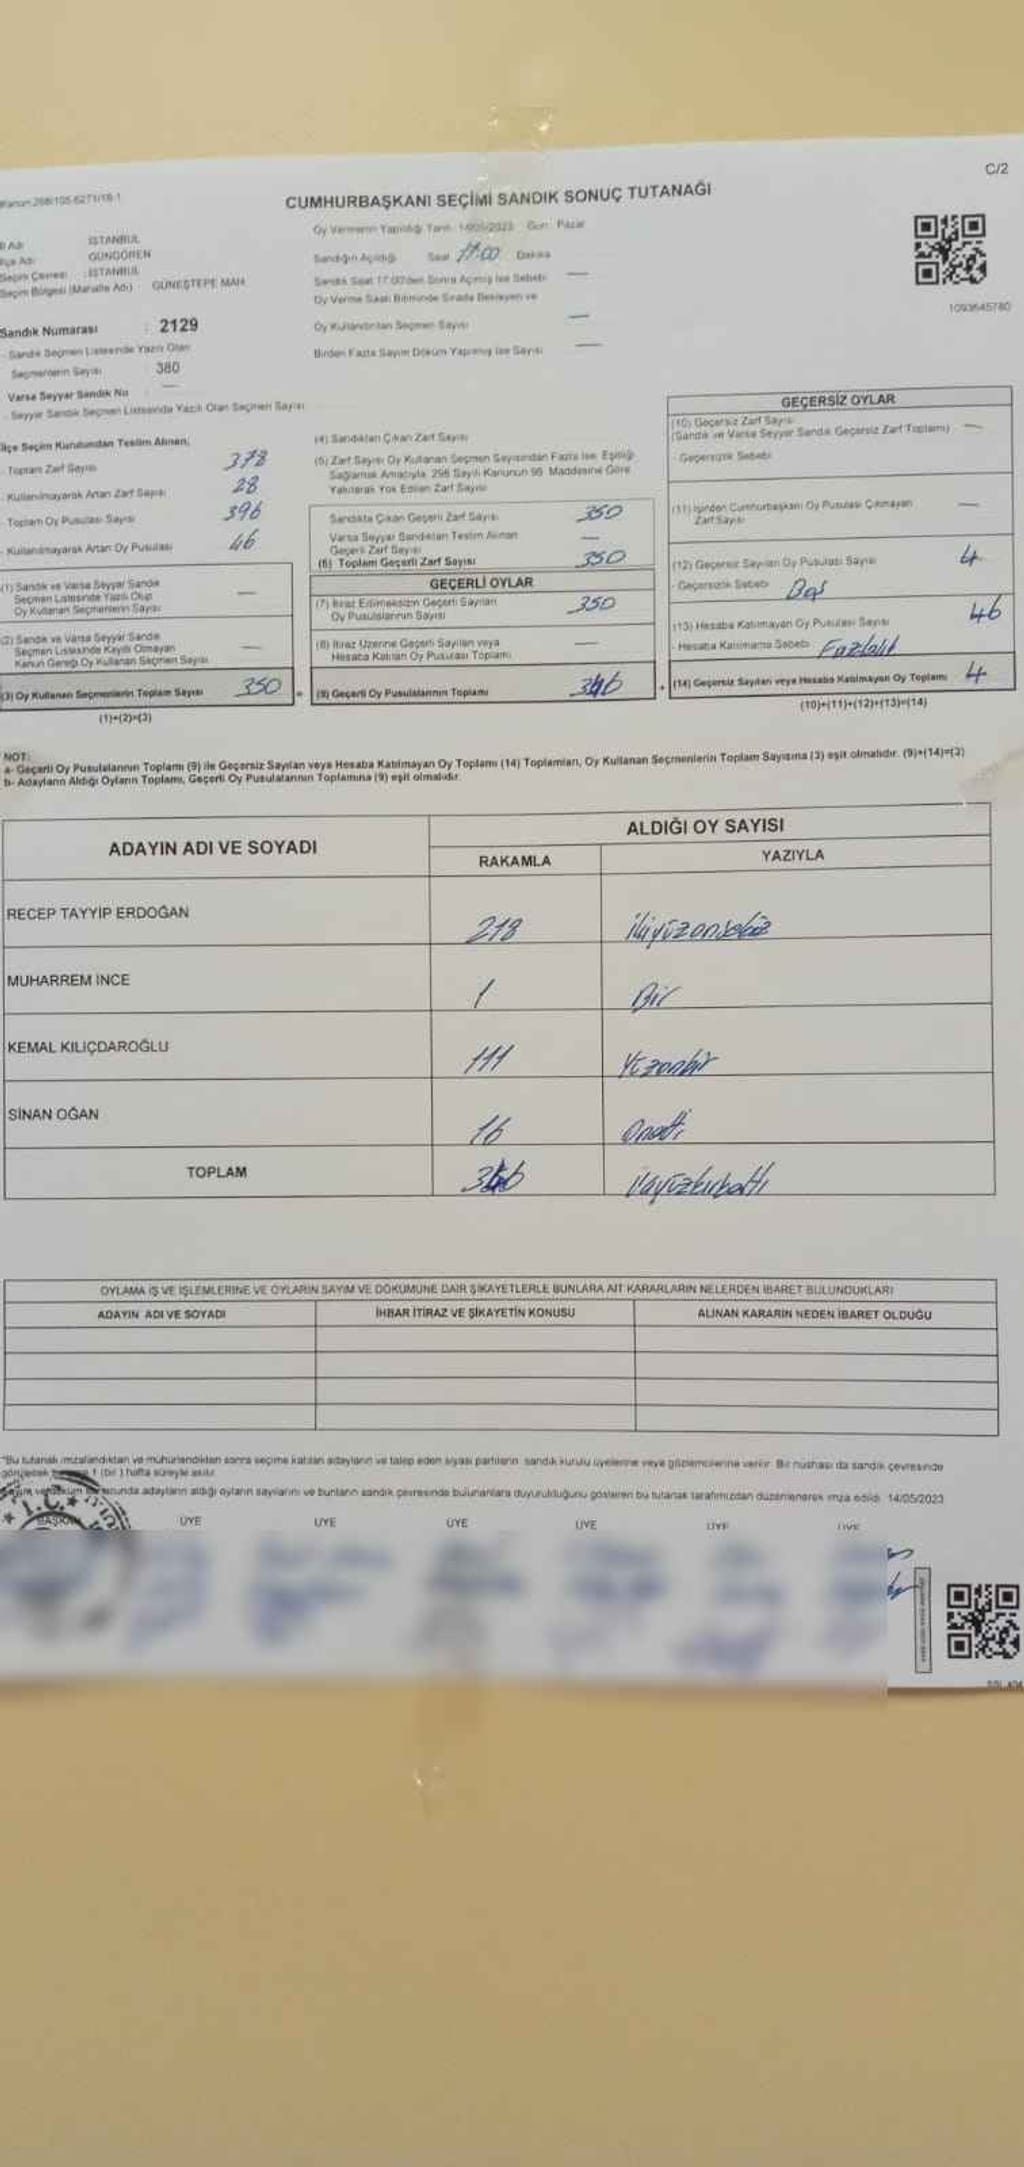 C/2
CUMHURBAŞKANI SEÇİMİ SANDIK SONUÇ TUTANAĞI
Oy Vermenin Yapıldığı Tarih: 14/05/2023 Gün: Pazar
İl Adı : İSTANBUL
İlçe Adı : GÜNGÖREN
Seçim Çevresi : İSTANBUL
Seçim Bölgesi (Mahalle Adı) : GÜNEŞTEPE MAH.
Sandığın Açıldığı Saat 17:00 Dakika
Sandık Saat 17:00'den Sonra Açılmış İse Sebebi —
Oy Verme Saati Bitiminde Sırada Bekleyen ve
Oy Kullandırılan Seçmen Sayısı —
Birden Fazla Sayım Döküm Yapılmış İse Sayısı —
1093645780
Sandık Numarası : 2129
- Sandık Seçmen Listesinde Yazılı Olan
Seçmenlerin Sayısı 380
Varsa Seyyar Sandık No —
- Seyyar Sandık Seçmen Listesinde Yazılı Olan Seçmen Sayısı
İlçe Seçim Kurulundan Teslim Alınan,
- Toplam Zarf Sayısı 378
- Kullanılmayarak Artan Zarf Sayısı 28
- Toplam Oy Pusulası Sayısı 396
- Kullanılmayarak Artan Oy Pusulası 46
(1) Sandık ve Varsa Seyyar Sandık
Seçmen Listesinde Yazılı Olup
Oy Kullanan Seçmenlerin Sayısı —
(2) Sandık ve Varsa Seyyar Sandık
Seçmen Listesinde Kayıtlı Olmayan
Kanun Gereği Oy Kullanan Seçmen Sayısı —
(3) Oy Kullanan Seçmenlerin Toplam Sayısı 350 =
(1)+(2)=(3)
(4) Sandıktan Çıkan Zarf Sayısı
(5) Zarf Sayısı Oy Kullanan Seçmen Sayısından Fazla İse, Eşitliği
Sağlamak Amacıyla, 298 Sayılı Kanunun 98. Maddesine Göre
Yakılarak Yok Edilen Zarf Sayısı
Sandıkta Çıkan Geçerli Zarf Sayısı 350
Varsa Seyyar Sandıktan Teslim Alınan
Geçerli Zarf Sayısı —
(6) Toplam Geçerli Zarf Sayısı 350
GEÇERLİ OYLAR
(7) İtiraz Edilmeksizin Geçerli Sayılan
Oy Pusulalarının Sayısı 350
(8) İtiraz Üzerine Geçerli Sayılan veya
Hesaba Katılan Oy Pusulası Toplamı —
(9) Geçerli Oy Pusulalarının Toplamı 346 +
GEÇERSİZ OYLAR
(10) Geçersiz Zarf Sayısı
(Sandık ve Varsa Seyyar Sandık Geçersiz Zarf Toplamı) —
- Geçersizlik Sebebi
(11) İçinden Cumhurbaşkanı Oy Pusulası Çıkmayan
Zarf Sayısı —
(12) Geçersiz Sayılan Oy Pusulası Sayısı 4
- Geçersizlik Sebebi Boş
(13) Hesaba Katılmayan Oy Pusulası Sayısı 46
- Hesaba Katılmama Sebebi Fazlalık
(14) Geçersiz Sayılan veya Hesaba Katılmayan Oy Toplamı 4
(10)+(11)+(12)+(13)=(14)
NOT:
a- Geçerli Oy Pusulalarının Toplamı (9) ile Geçersiz Sayılan veya Hesaba Katılmayan Oy Toplamı (14) Toplamları, Oy Kullanan Seçmenlerin Toplam Sayısına (3) eşit olmalıdır. (9)+(14)=(3)
b- Adayların Aldığı Oyların Toplamı, Geçerli Oy Pusulalarının Toplamına (9) eşit olmalıdır.
ADAYIN ADI VE SOYADI
ALDIĞI OY SAYISI
RAKAMLA YAZIYLA
RECEP TAYYİP ERDOĞAN 218 ikiyüzonsekiz
MUHARREM İNCE 1 Bir
KEMAL KILIÇDAROĞLU 111 Yüzonbir
SİNAN OĞAN 16 Onaltı
TOPLAM 346 üçyüzkırkaltı
OYLAMA İŞ VE İŞLEMLERİNE VE OYLARIN SAYIM VE DÖKÜMÜNE DAİR ŞİKAYETLERLE BUNLARA AİT KARARLARIN NELERDEN İBARET BULUNDUKLARI
ADAYIN ADI VE SOYADI İHBAR İTİRAZ VE ŞİKAYETİN KONUSU ALINAN KARARIN NEDEN İBARET OLDUĞU
"Bu tutanak imzalandıktan ve mühürlendikten sonra seçime katılan adayların ve talep eden siyasi partilerin sandık kurulu üyelerine veya gözlemcilerine verilir. Bir nüshası da sandık çevresinde
1 (bir) hafta süreyle asılır.
adayların aldığı oyların sayılarını ve bunların sandık çevresinde bulunanlara duyurulduğunu gösteren bu tutanak tarafımızdan düzenlenerek imza edildi. 14/05/2023
T.C.
BAŞKAN ÜYE ÜYE ÜYE ÜYE ÜYE ÜYE